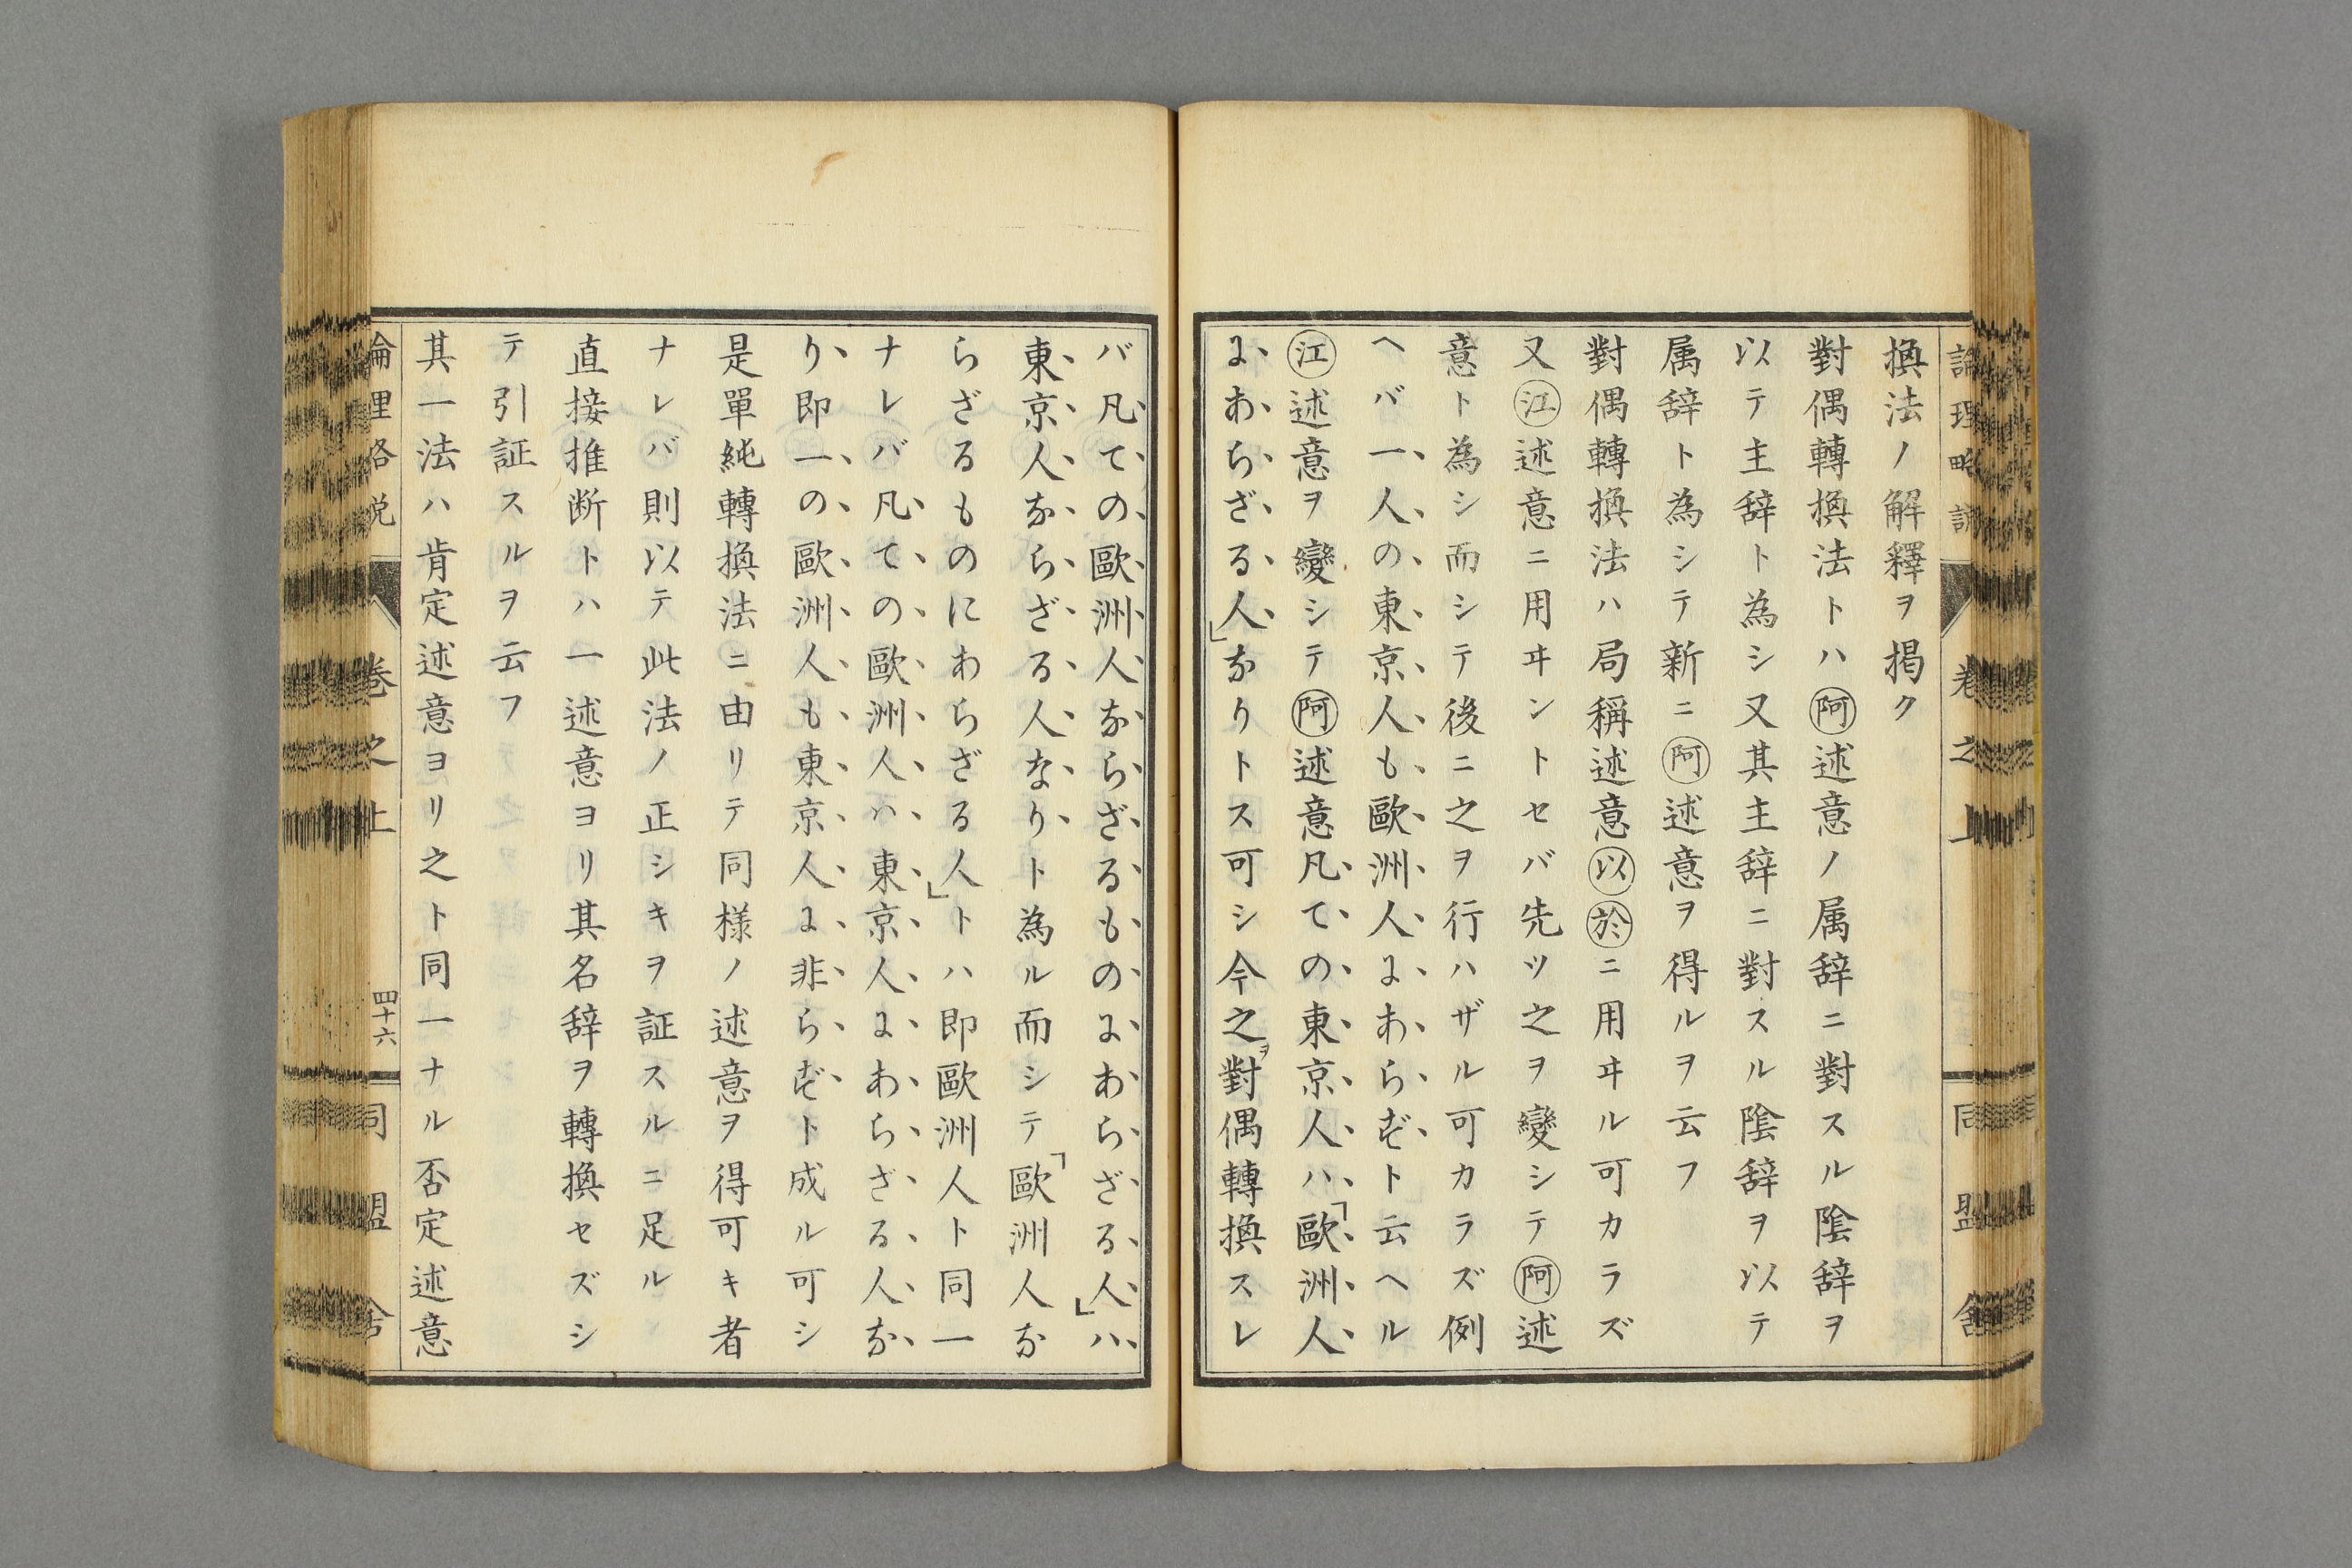 換法ノ解釋ヲ掲ク
對偶轉換法トハ阿述意ノ属辞ニ對スル陰辞ヲ
以テ主辞ト為シ又其主辞ニ對スル陰辞ヲ以テ
属辞ト為シテ新ニ阿述意ヲ得ルヲ云フ
對偶轉換法ハ局稱述意以於ニ用ヰル可カラズ
又江述意ニ用ヰントセバ先ツ之ヲ變シテ阿述
意ト為シ而シテ後ニ之ヲ行ハザル可カラズ例
ヘバ一人の東京人も歐洲人にあらずト云ヘル
江述意ヲ變シテ阿述意凡ての東京人ハ「歐洲人
にあらざる人」なりトス可シ今之ヲ對偶轉換スレ
バ凡ての歐洲人ならざるものにあらざる人」ハ
東京人ならざる人なりト為ル而シテ「歐洲人な
らざるものにあらざる人」トハ即歐洲人ト同一
ナレバ凡ての歐洲人ハ東京人にあらざる人な
り即一の歐洲人も東京人に非らずト成ル可シ
是單純轉換法ニ由リテ同様ノ述意ヲ得可キ者
ナレバ則以テ此法ノ正シキヲ証スルニ足ル
直接推断トハ一述意ヨリ其名辞ヲ轉換セズシ
テ引証スルヲ云フ
其一法ハ肯定述意ヨリ之ト同一ナル否定述意
卷之上
四十六
同盟舎